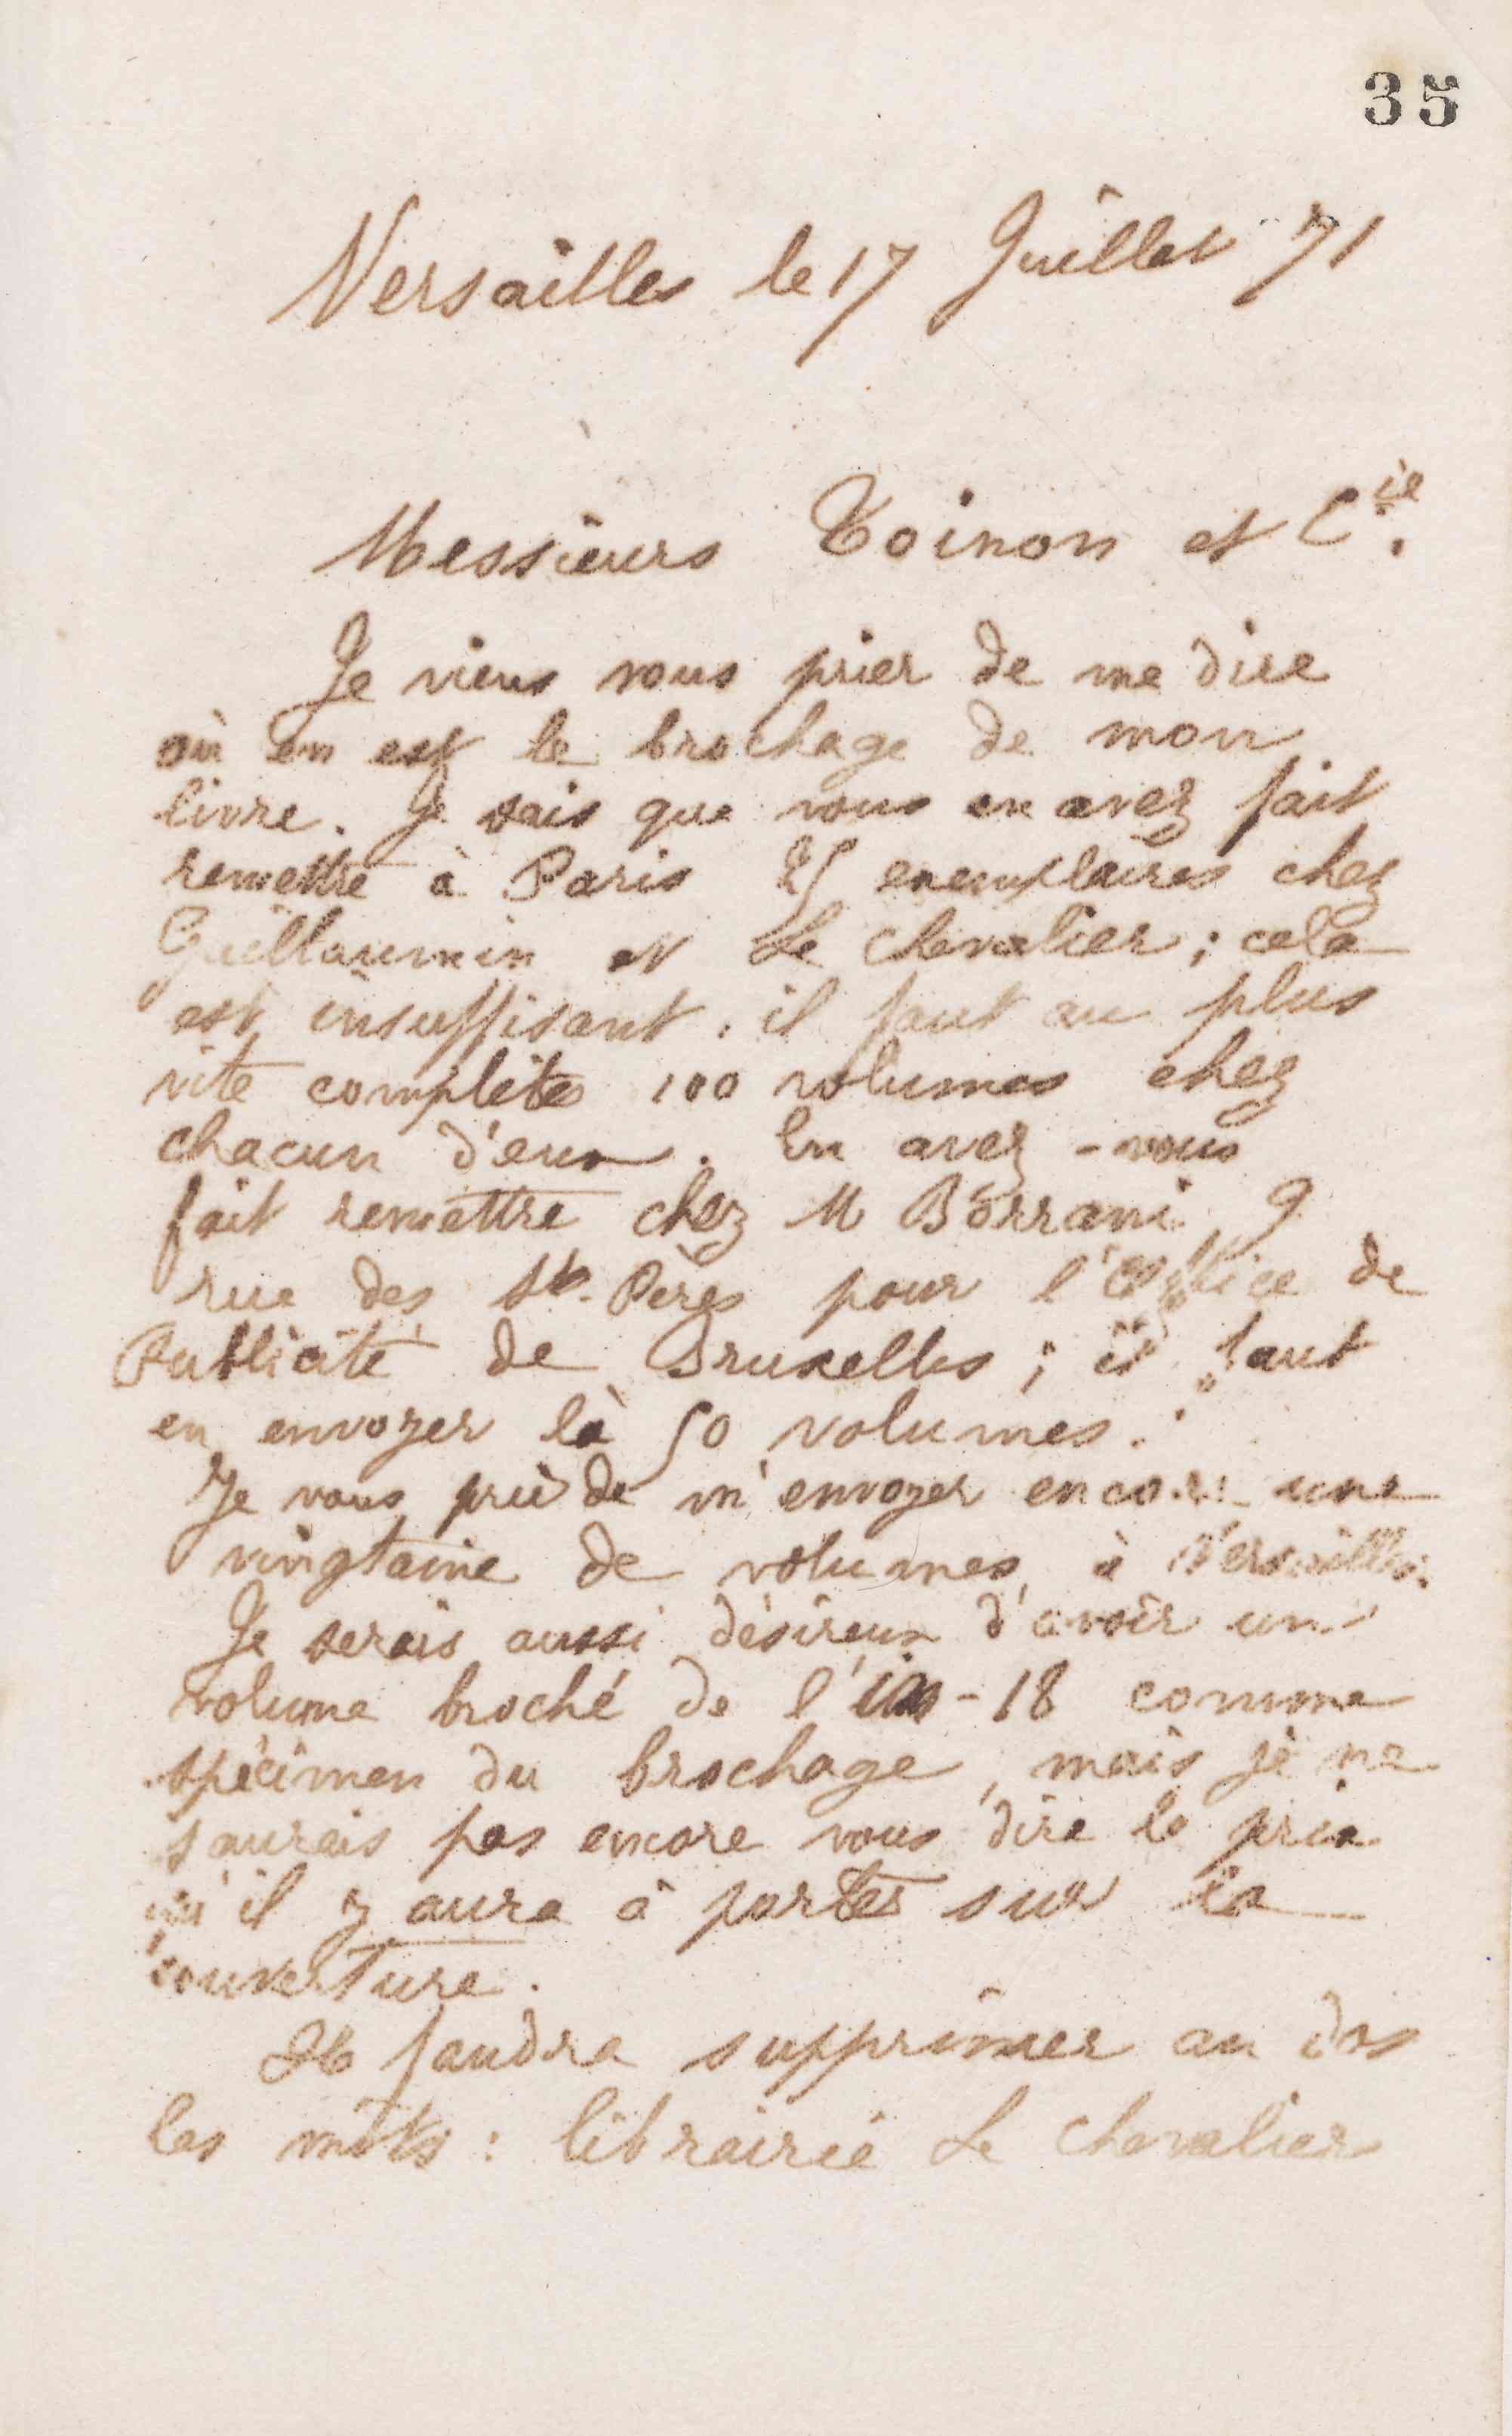 35
Versailles le 17 Juillet 71
Messieurs Toinon et Cie.
Je viens vous prier de me dire
où en est le brochage de mon
livre. Je sais que vous en avez fait
remettre à Paris 25 exemplaires chez
Guillaumin et Le Chevalier ; cela
est insuffisant. il faut au plus
vite compléter 100 volumes chez
chacun d'eux. En avez-vous
fait remettre chez M Borrani, 9
rue des Sts. Pères pour l'Office de
Publicité de Bruxelles ; il faut
en envoyer là 50 volumes.
Je vous prie de m'envoyer encore une
vingtaine de volumes à Versailles.
Je serais aussi désireux d'avoir un
volume broché de l'in-18 comme
spécimen du brochage, mais je ne
saurais pas encore vous dire le prix
qu'il y aura à porter sur la
couverture.
Il faudra supprimer au dos
les mots : librairie Le Chevalier